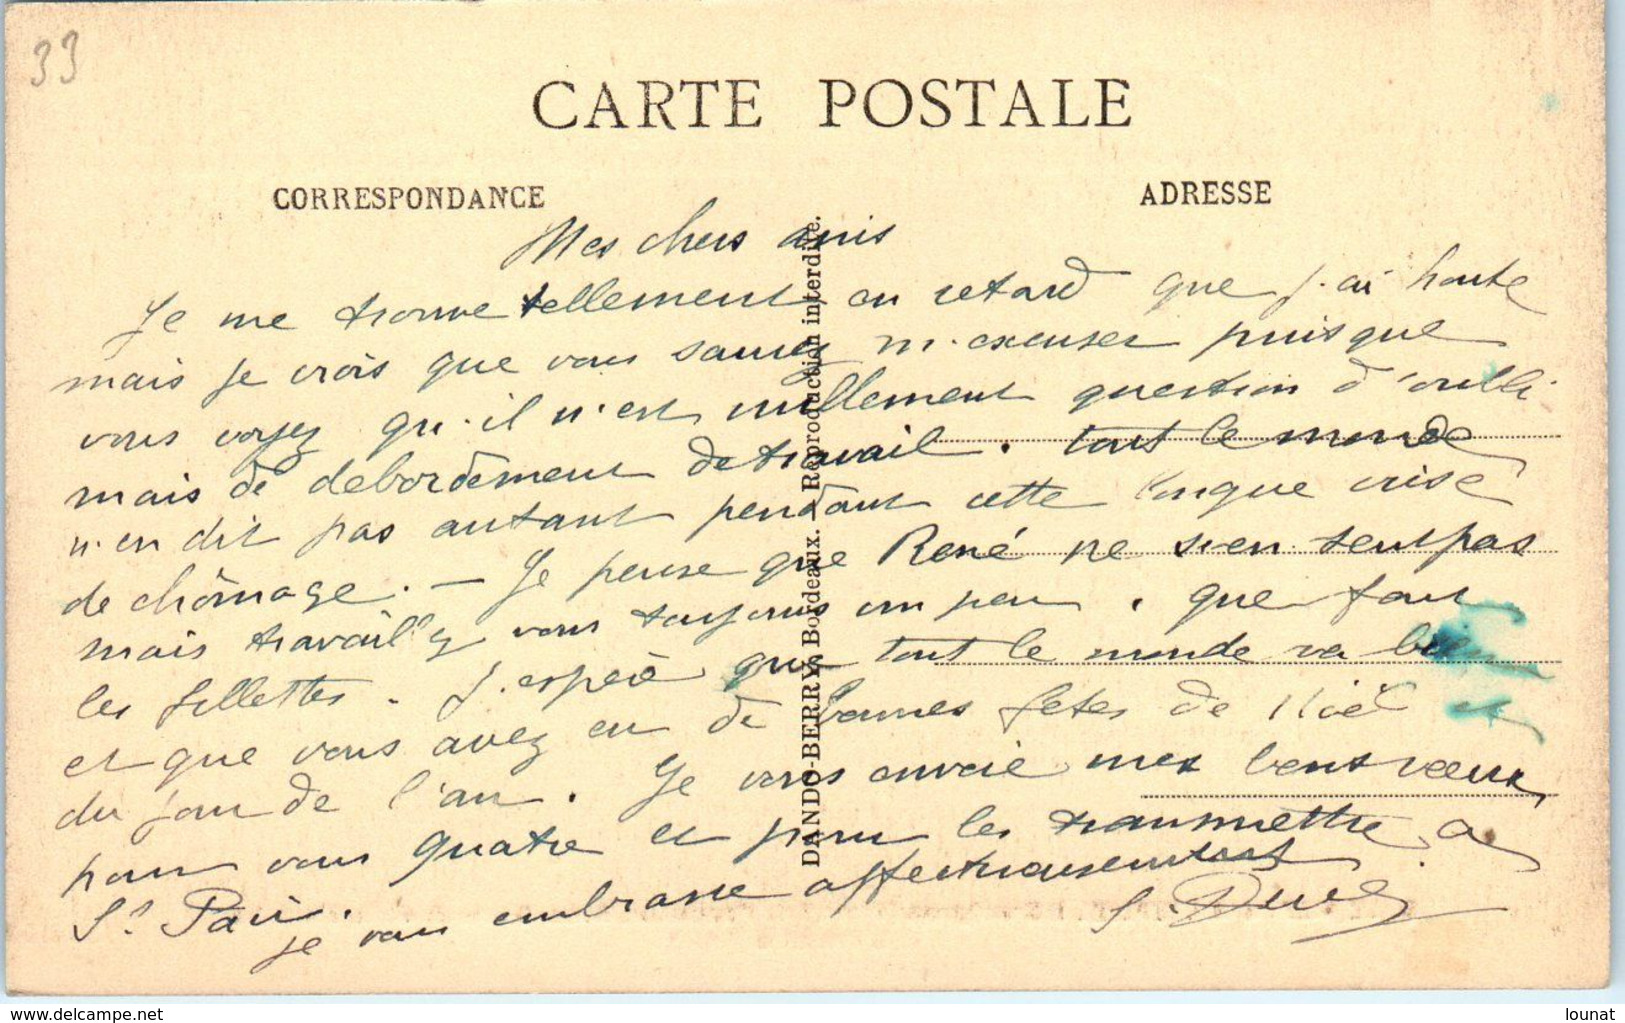 33
CARTE POSTALE
CORRESPONDANCE
ADRESSE
Mes chers amis
Je me trouve tellement en retard que j'ai honte
mais je crois que vous saurez m'excuser puisque
vous voyez qu'il n'est nullement question d'oubli
mais de debordement de travail. tout le monde
n'en dit pas autant pendant cette longue crise
de chômage. — Je pense que René ne s'en sent pas
mais travaillez vous toujours un peu. que font
les fillettes. J'espère que tout le monde va bien
et que vous avez eu de bonnes fetes de Noël et
du jour de l'an. Je vous envoie mes bons voeux
pour vous quatre et pour les transmettre à
St. Pair.
je vous embrasse affectueusement
DANDO-BERRY, Bordeaux. — Reproduction interdite.
www.delcampe.net
lounat